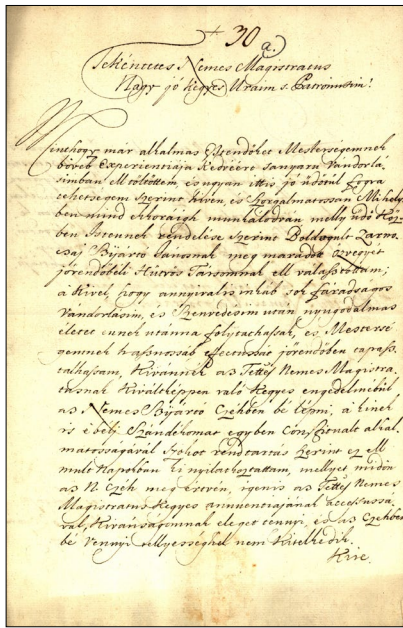 30
a.
Tekéntetes Nemes Magistratus
Nagy jó kegyes Uraim s. Patronusim!
Minthogy már alkalmas Esztendőket Mesterségemnek
bővebb Experientiája kedvéért sanyaru vándorlá
simban el töltöttem, és ugyan ittis jó üdőtül fogva
tehetségem szerint hiven, és szorgalmatossan Mühely
ben mind ekkoráigh munkálodtam melly üdő köz
ben Istennek rendelése szerint Boldogult
János nak meg maradott özvegyét
jövendőbéli Hütvös Társomnak ell választottam;
a kivel, hogy annyival is inkáb sok fáradságos
vándorlásim, és Szenvedésim után nyugodalmas
életet ennek utánna folytathassak, és Mestersé
gemnek hasznossab effectussát jövendőben tapasz,
talhassam, Kivánnék az Tettes Nemes Magistra
tusnak kiváltképpen való kegyes engedelmébül
az Nemes Czéhben bé lépni, a kinek
is ebéli Szándékomat egyben Constituált alkal
matosságával Szokot rendtartás szerint ez ell
mult napokban ki nyilatkoztattam, mellyet midőn
az N. Czéh meg értvén, igenis az Tettes Nemes
Magistratus kegyes annuentiájának accessussá
val, kivánságomnak eleget tennyi, és az Czéhben
bé vennyi tellyességhel nem
Kire